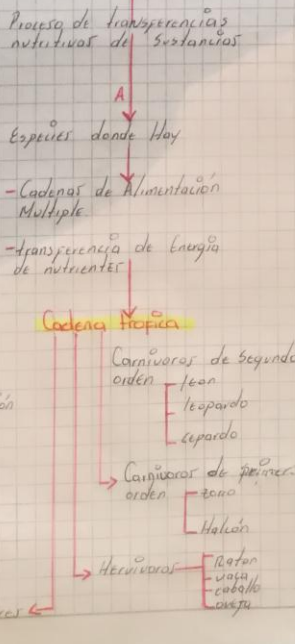 Proceso de transferencias
nutritivas de Sustancias
A
Especies donde Hay
-Cadenas de Alimentación
Multiple
-transferencia de Energia
de nutrientes
Cadena trofica
Carnivoros de Segundo
orden
leon
leopardo
Lepardo
Carnivoros de primer
orden
zorro
Halcón
Hervivoros
Raton
vaca
caballo
oveja